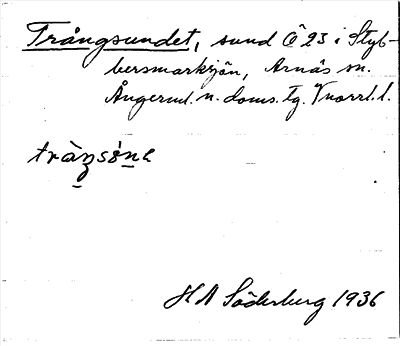 Trångsundet, sund Ö 23 i Styb-
bersmarksjön, Arnäs sn.
Ångerml. n. doms. tg. Vnorrl. l.
HA Söderburg 1936